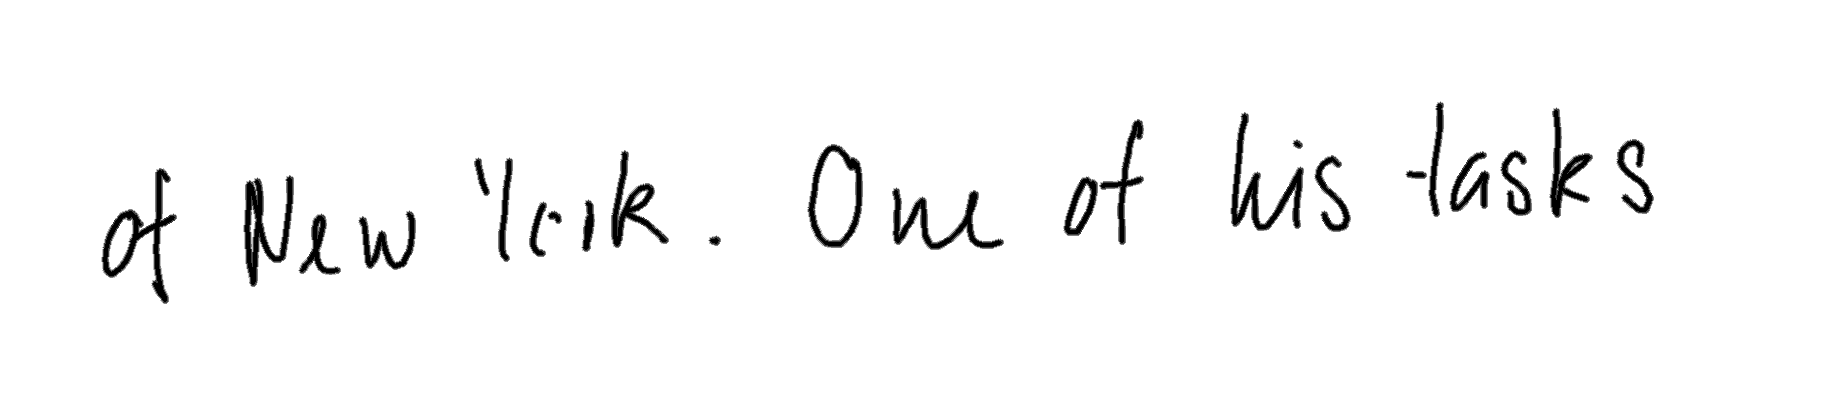 of New York. One of his tasks